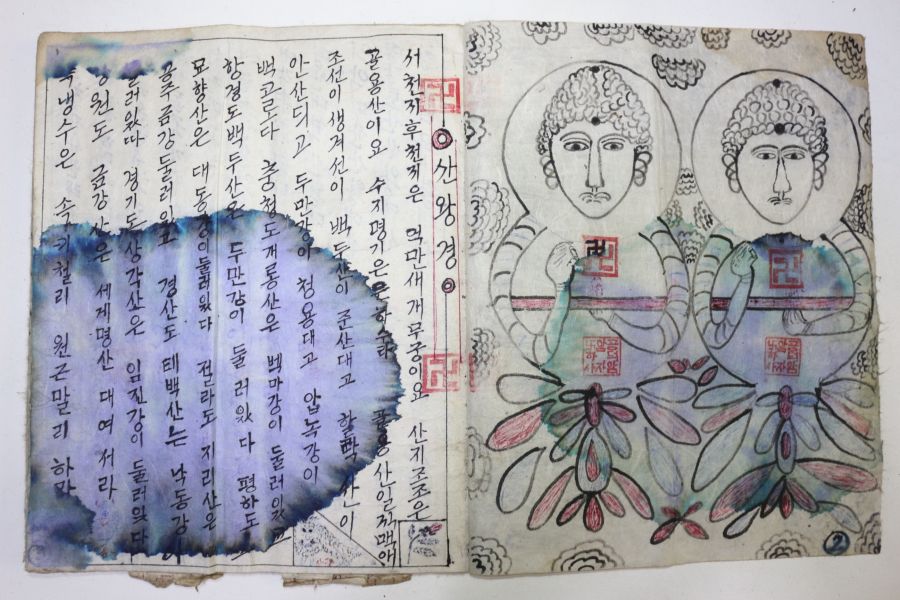 산왕경
서천지후천지은 억만새개무궁이요 산지조조은
골용산이요 수지명기은은하수라 골용산일지맥애
조선이생겨선이 백두산이 준산대고 산이
안산되고 두만강이 청용대고 압녹강이
백고로다 충청도개룡산은 백마강이 둘러있고
항경도백두산은 두만강이 둘러있다 평하도
묘향산은 대동강이둘러있다 절라도 지리산은
공주금강둘러있고 경산도 태백산는 낙동강이
둘러있따 경기도상각산은 임진강이 둘러있다
강원도 금강산은 세게명산 대여서라
냉수은 속기철리 원근말리 하마
卍
卍
卍
卍
2